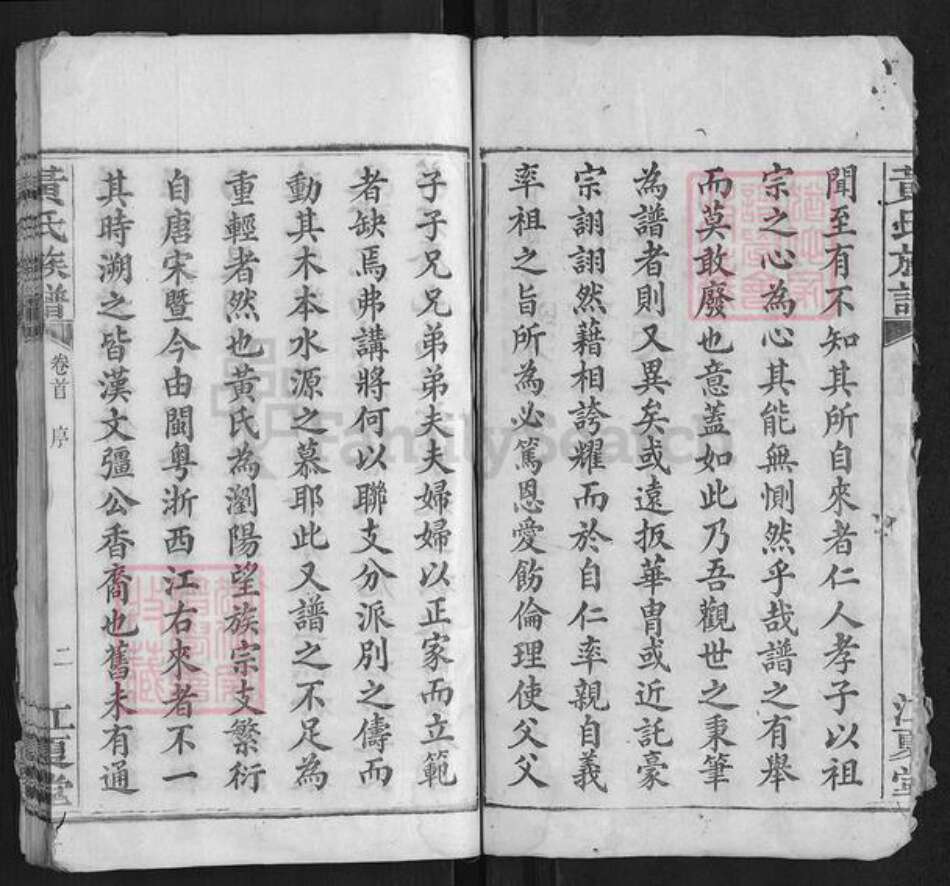 黃氏族譜
江夏堂
聞至有不知其所自來者仁人孝子以祖
宗之心為心其能無惻然乎哉譜之有舉
而莫敢廢也意蓋如此乃吾觀世之秉筆
為譜者則又異矣或遠扳華胄或近託豪
宗詡詡然藉相誇耀而於自仁率親自義
率祖之旨所為必篤恩愛飭倫理使父父
子子兄兄弟弟夫夫婦婦以正家而立範
者缺焉弗講將何以聯支分派別之儔而
動其木本水源之慕耶此又譜之不足為
重輕者然也黃氏為瀏陽望族宗支繁衍
自唐宋暨今由閩粵浙西江右來者不一
其時溯之皆漢文彊公香裔也舊未有通
黃氏族譜
卷首 序
二
江夏堂
FamilySearch